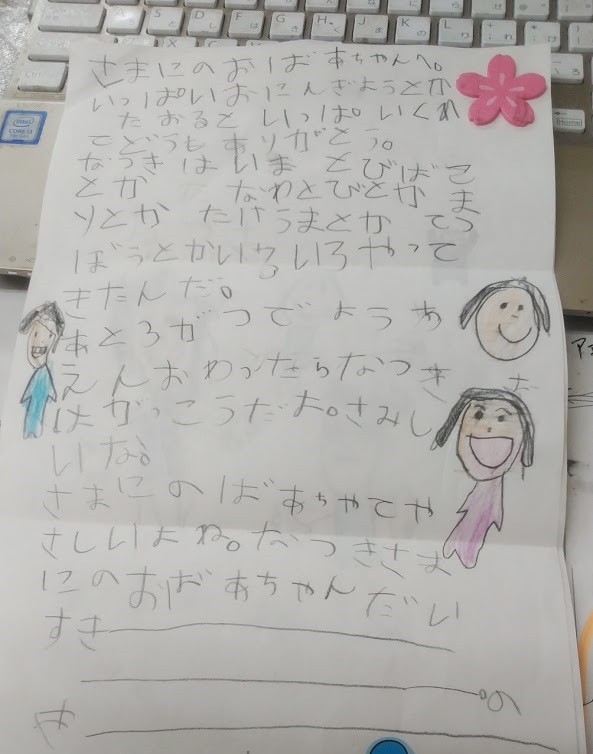 さまにのおばあちゃんへ。
いっぱいおにんぎようとか
たおると いっぱいくれ
てどうもありがとう。
なつきはいま とびばこ
とか なわとびとかま
りとか たけうまとか てつ
ぼうとかいろいろやって
きたんだ。
あとろがつでようち
えんおわったらなつき
はがっこうだよ。さみし
いな。
さまにのばあちゃてや
さしいよね。なつきさま
にのおばあちゃんだい
すき
。の
intel
CORE i3